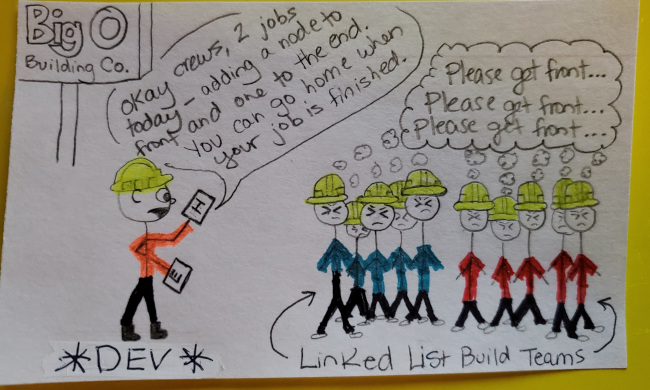 Big O
Building Co.
Okay crews, 2 jobs
today - adding a node to
front and one to the end.
You can go home when
your job is finished.
Please get front...
Please get front...
Please get front...
H
E
*DEV*
Linked List Build Teams